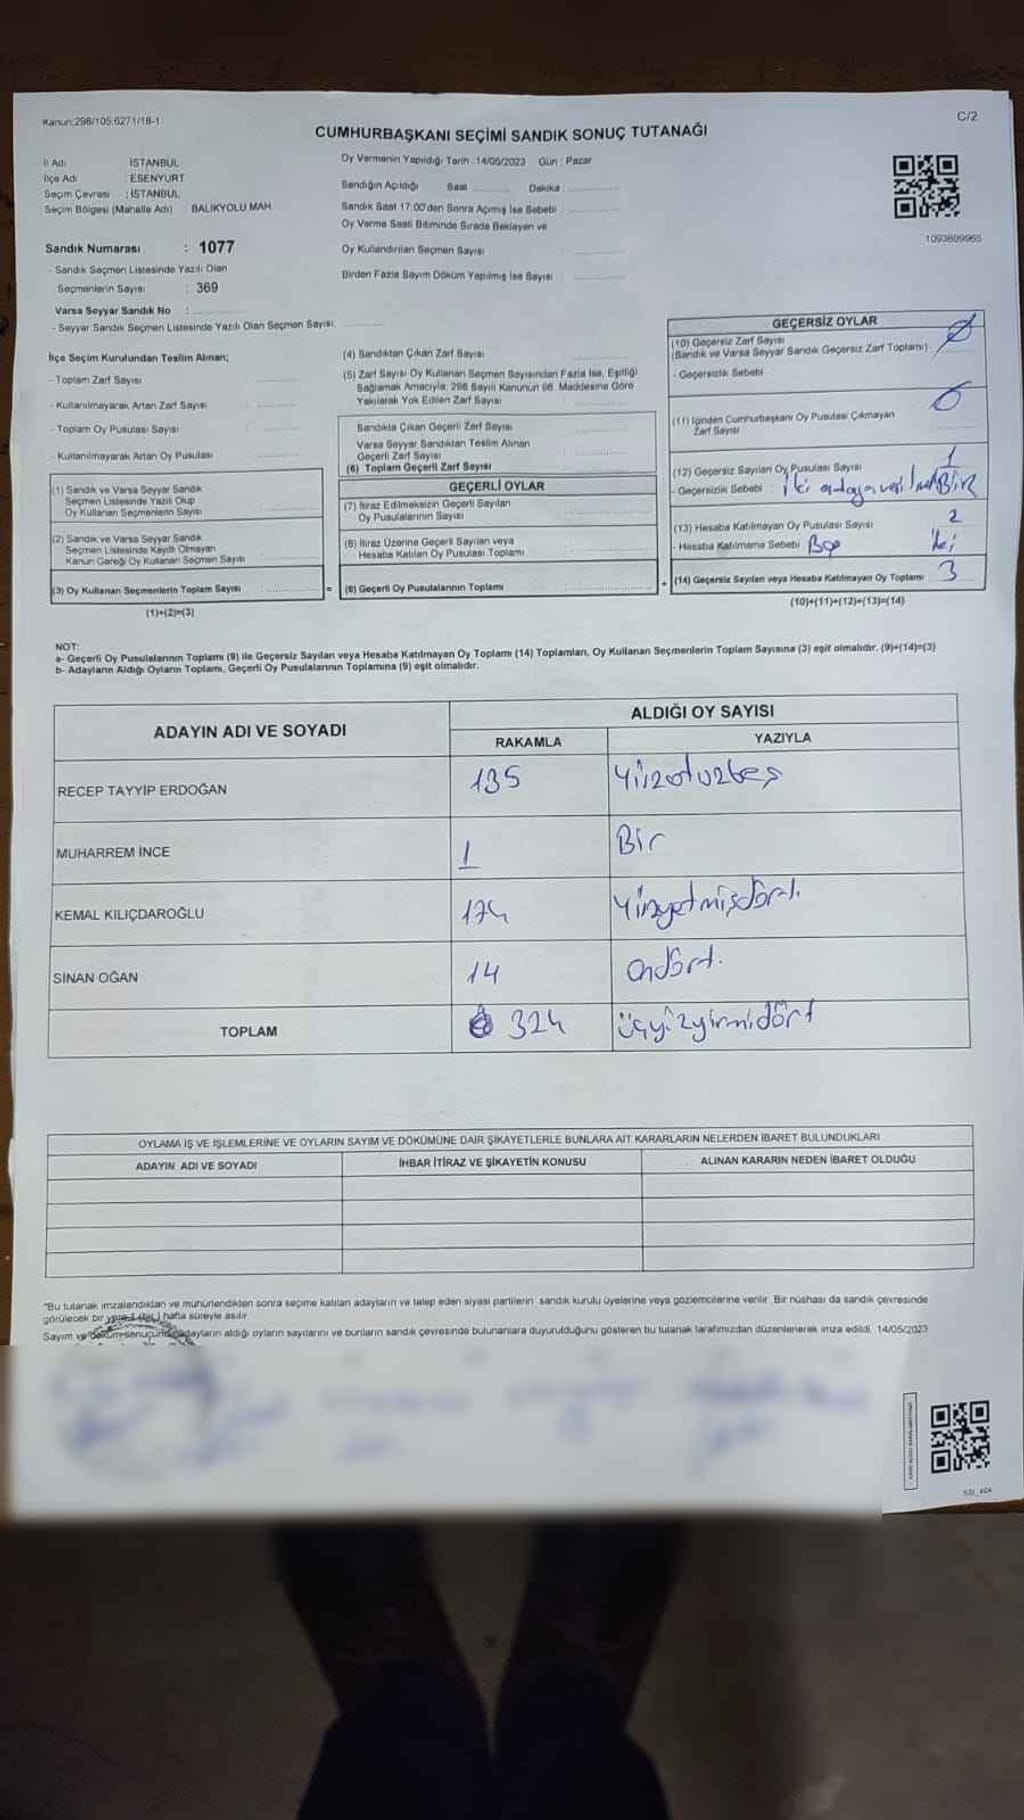 Kanun:298/105,6271/18-1
C/2
CUMHURBAŞKANI SEÇİMİ SANDIK SONUÇ TUTANAĞI
İl Adı İSTANBUL
İlçe Adı ESENYURT
Seçim Çevresi : İSTANBUL
Seçim Bölgesi (Mahalle Adı) BALIKYOLU MAH.
Oy Vermenin Yapıldığı Tarih : 14/05/2023 Gün : Pazar
Sandığın Açıldığı Saat Dakika :
Sandık Saat 17:00'den Sonra Açılmış İse Sebebi :
Oy Verme Saati Bitiminde Sırada Bekleyen ve
Oy Kullandırılan Seçmen Sayısı :
Birden Fazla Sayım Döküm Yapılmış İse Sayısı :
1093609965
Sandık Numarası : 1077
- Sandık Seçmen Listesinde Yazılı Olan
Seçmenlerin Sayısı : 369
Varsa Seyyar Sandık No :
- Seyyar Sandık Seçmen Listesinde Yazılı Olan Seçmen Sayısı.
İlçe Seçim Kurulundan Teslim Alınan;
- Toplam Zarf Sayısı
- Kullanılmayarak Artan Zarf Sayısı
- Toplam Oy Pusulası Sayısı
- Kullanılmayarak Artan Oy Pusulası
(4) Sandıktan Çıkan Zarf Sayısı
(5) Zarf Sayısı Oy Kullanan Seçmen Sayısından Fazla İse, Eşitliği
Sağlamak Amacıyla; 298 Sayılı Kanunun 98. Maddesine Göre
Yakılarak Yok Edilen Zarf Sayısı
Sandıkta Çıkan Geçerli Zarf Sayısı
Varsa Seyyar Sandıktan Teslim Alınan
Geçerli Zarf Sayısı
(6) Toplam Geçerli Zarf Sayısı
(1) Sandık ve Varsa Seyyar Sandık
Seçmen Listesinde Yazılı Olup
Oy Kullanan Seçmenlerin Sayısı
(2) Sandık ve Varsa Seyyar Sandık
Seçmen Listesinde Kayıtlı Olmayan
Kanun Gereği Oy Kullanan Seçmen Sayısı
(3) Oy Kullanan Seçmenlerin Toplam Sayısı
(1)+(2)=(3)
=
GEÇERLİ OYLAR
(7) İtiraz Edilmeksizin Geçerli Sayılan
Oy Pusulalarının Sayısı
(8) İtiraz Üzerine Geçerli Sayılan veya
Hesaba Katılan Oy Pusulası Toplamı
(9) Geçerli Oy Pusulalarının Toplamı
+
GEÇERSİZ OYLAR
(10) Geçersiz Zarf Sayısı
(Sandık ve Varsa Seyyar Sandık Geçersiz Zarf Toplamı)
- Geçersizlik Sebebi
(11) İçinden Cumhurbaşkanı Oy Pusulası Çıkmayan
Zarf Sayısı
(12) Geçersiz Sayılan Oy Pusulası Sayısı 1
- Geçersizlik Sebebi : İki adaya verilmesi Bir
(13) Hesaba Katılmayan Oy Pusulası Sayısı 2
- Hesaba Katılmama Sebebi Boş iki
(14) Geçersiz Sayılan veya Hesaba Katılmayan Oy Toplamı 3
(10)+(11)+(12)+(13)=(14)
NOT:
a- Geçerli Oy Pusulalarının Toplamı (9) ile Geçersiz Sayılan veya Hesaba Katılmayan Oy Toplamı (14) Toplamları, Oy Kullanan Seçmenlerin Toplam Sayısına (3) eşit olmalıdır. (9)+(14)=(3)
b- Adayların Aldığı Oyların Toplamı, Geçerli Oy Pusulalarının Toplamına (9) eşit olmalıdır.
ADAYIN ADI VE SOYADI
ALDIĞI OY SAYISI
RAKAMLA YAZIYLA
RECEP TAYYİP ERDOĞAN 135 Yüzotuzbeş
MUHARREM İNCE 1 Bir
KEMAL KILIÇDAROĞLU 174 Yüzyetmişdört.
SİNAN OĞAN 14 ondört.
TOPLAM 324 üçyüzyirmidört
OYLAMA İŞ VE İŞLEMLERİNE VE OYLARIN SAYIM VE DÖKÜMÜNE DAİR ŞİKAYETLERLE BUNLARA AİT KARARLARIN NELERDEN İBARET BULUNDUKLARI
ADAYIN ADI VE SOYADI İHBAR İTİRAZ VE ŞİKAYETİN KONUSU ALINAN KARARIN NEDEN İBARET OLDUĞU
"Bu tutanak imzalandıktan ve mühürlendikten sonra seçime katılan adayların ve talep eden siyasi partilerin sandık kurulu üyelerine veya gözlemcilerine verilir. Bir nüshası da sandık çevresinde
görülecek bir yere 1 (bir) hafta süreyle asılır.
Sayım ve döküm sonucunda adayların aldığı oyların sayılarını ve bunların sandık çevresinde bulunanlara duyurulduğunu gösteren bu tutanak tarafımızdan düzenlenerek imza edildi. 14/05/2023